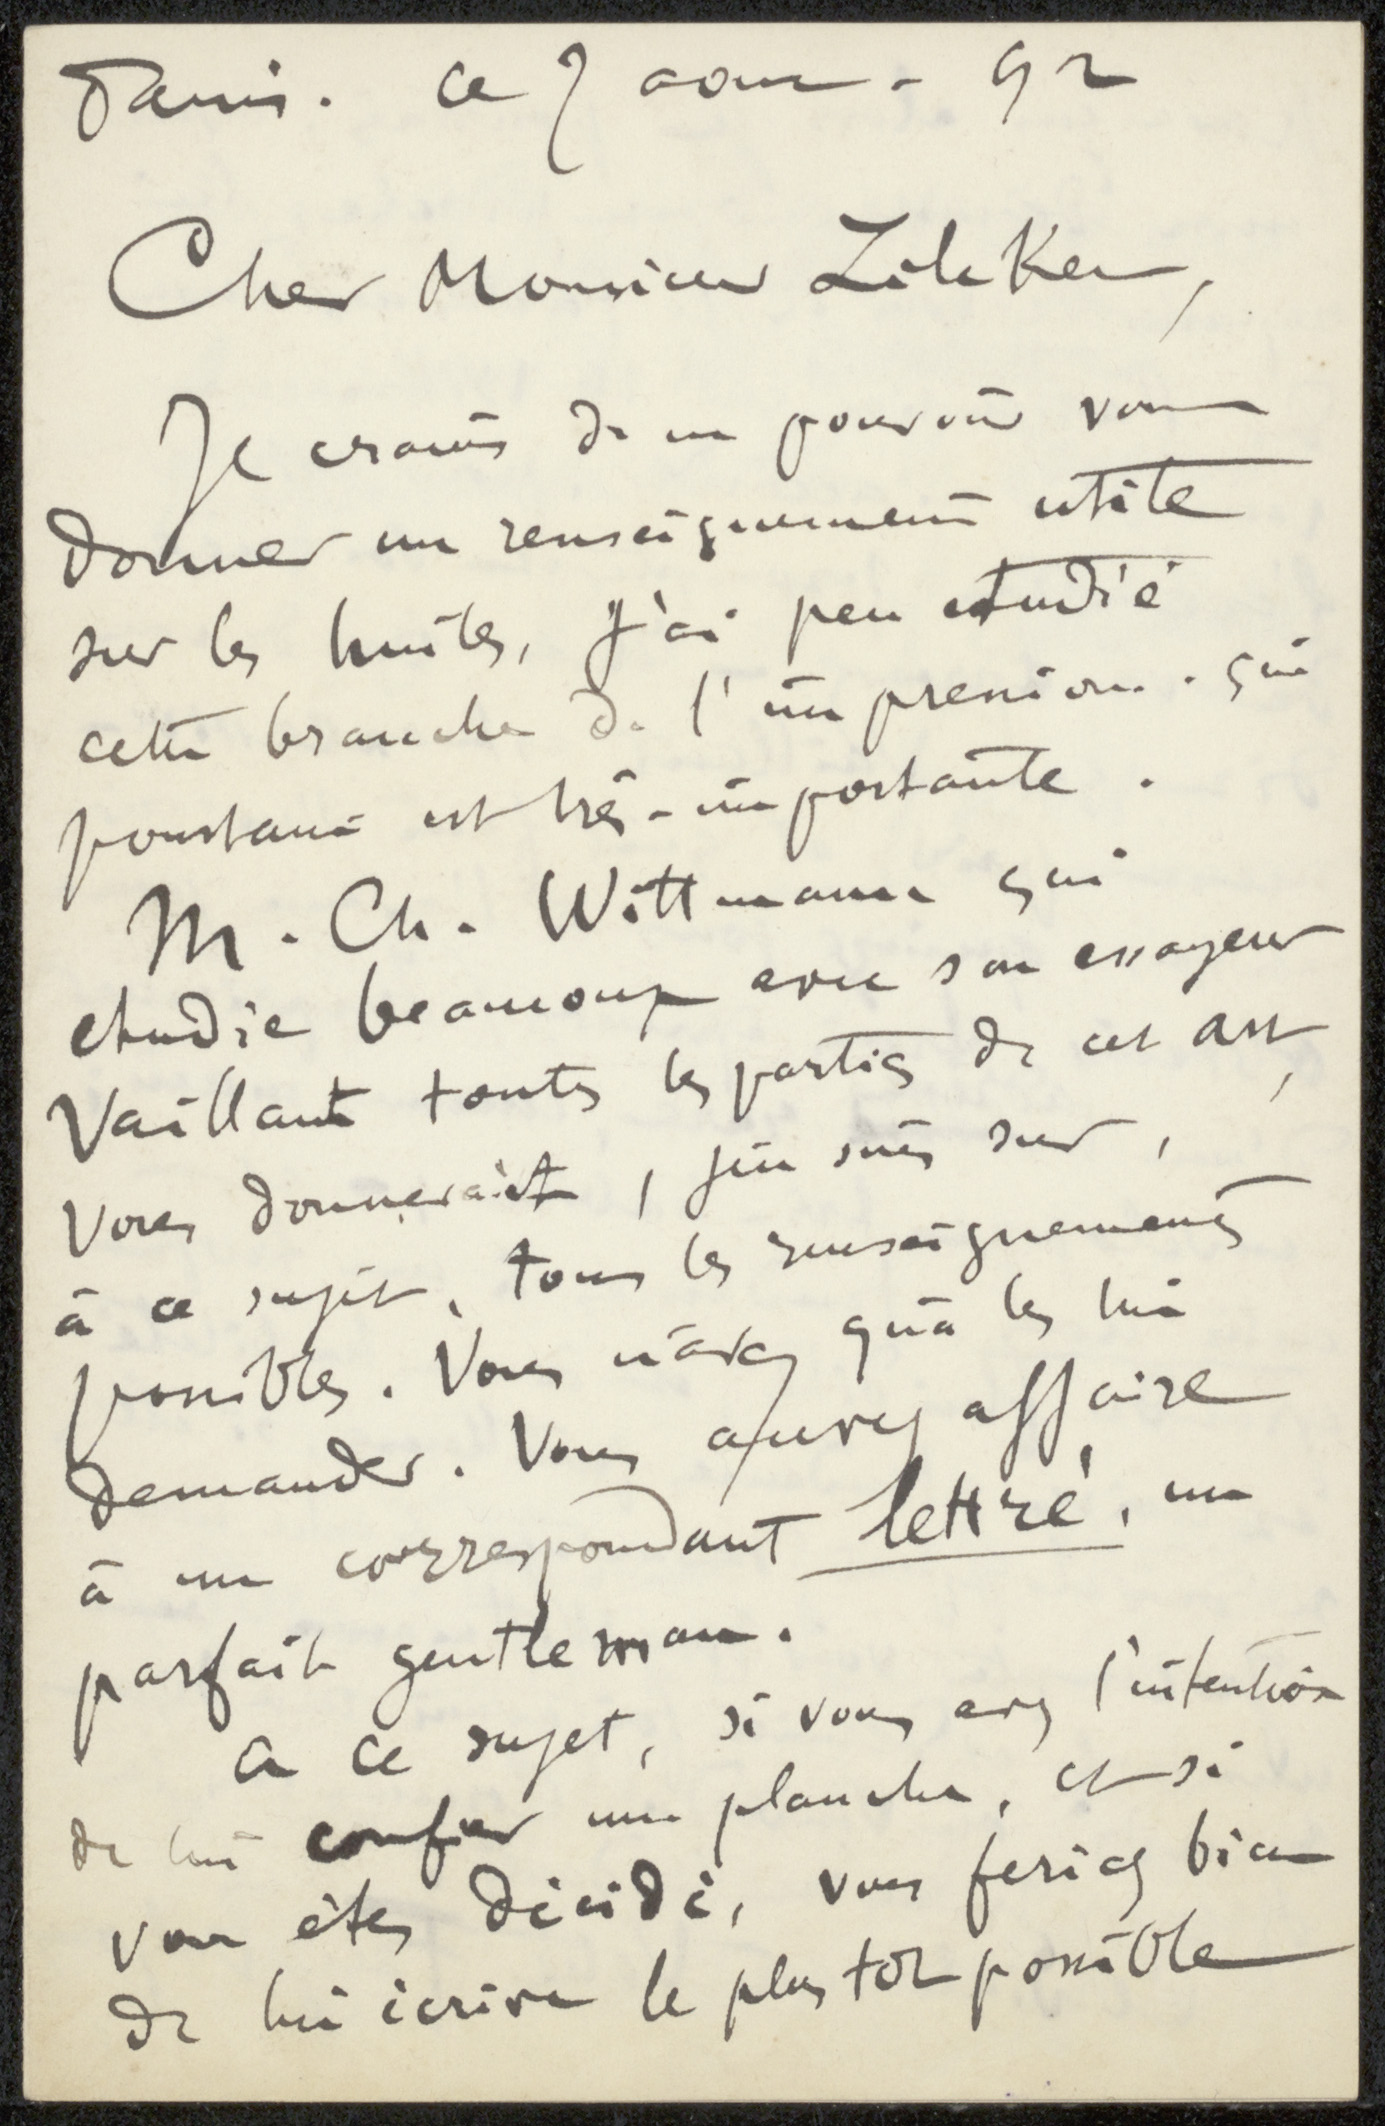 Paris. ce 7 aout - 92
Cher Monsieur Zilcken,
Je crains de ne pouvoir vous
donner un renseignement utile
sur les huiles, j'ai peu étudié
cette branche de l'impression. qui
pourtant est très-importante.
M. Ch. Wittmann qui
etudie beaucoup avec son essayeur
Vaillant toutes les parties de cet art,
vous donnerait, j'en suis sur,
à ce sujet, tous les renseignements
possibles. Vous n'avez qu'à les lui
demander. Vous aurez affaire
à un correspondant lettré, un
parfait gentleman.
a ce sujet, si vous avez l'intention
de lui confier une planche, et si
vous êtes décidé, vous feriez bien
de lui écrire le plus tot possible